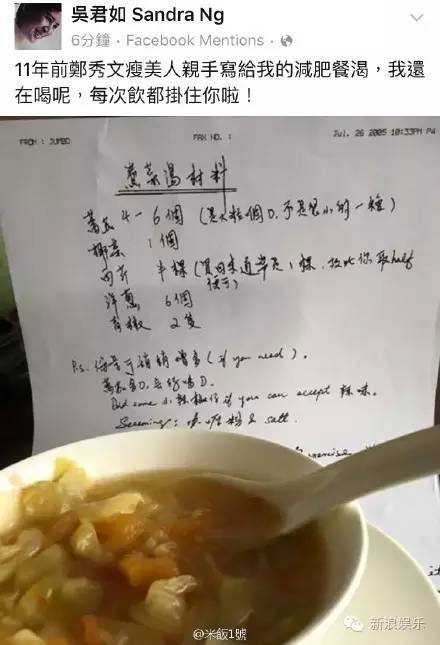 吳君如 Sandra Ng
6分鐘 · Facebook Mentions ·
11年前鄭秀文瘦美人親手寫給我的減肥餐渴，我還
在喝呢，每次飲都掛住你啦！
FROM : JUMBO FAX NO. : Jul. 26 2005 10:33PM P4
湯材料
4-6個 (是大粒個D，不是很小的一種)
椰菜 1個
西芹 半棵 (買回來通常是1棵，故此你取half
便可)
洋蔥 6個
青椒 2隻
P.S. 份量可稍稍增多 (if you need).
辣椒仔 if you can accept 辣味.
& salt.
@米飯1號
新浪娱乐